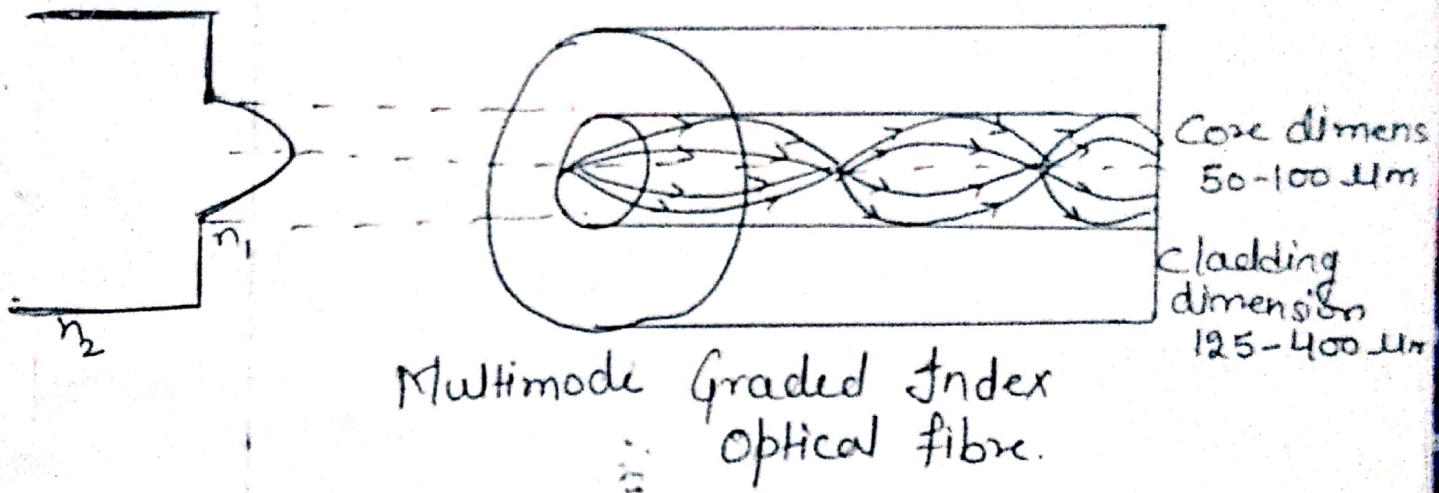 n₁
n₂
Core dimens
50-100 µm
cladding
dimension
125-400 µm
Multimode Graded Index
optical fibre.